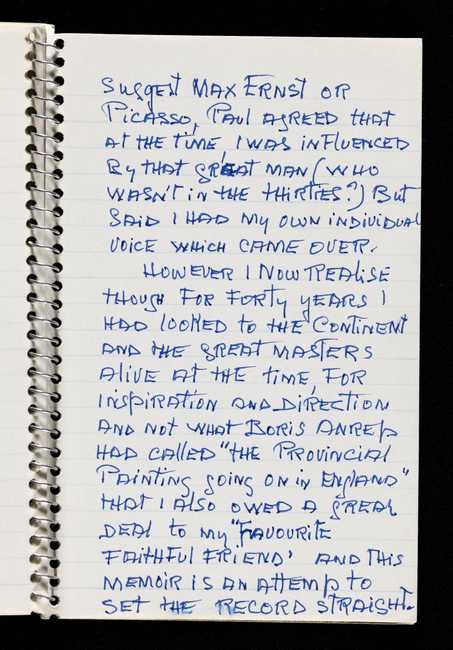 SUGGEST MAX ERNST OR
PICASSO, PAUL AGREED THAT
AT THE TIME, I WAS INFLUENCED
BY THAT GREAT MAN (WHO
WASN'T IN THE THIRTIES?) BUT
SAID I HAD MY OWN INDIVIDUAL
VOICE WHICH CAME OVER.
HOWEVER I NOW REALISE
THOUGH FOR FORTY YEARS I
HAD LOOKED TO THE CONTINENT
AND THE GREAT MASTERS
ALIVE AT THE TIME, FOR
INSPIRATION AND DIRECTION
AND NOT WHAT BORIS ANREP
HAD CALLED "THE PROVINCIAL
PAINTING GOING ON IN ENGLAND"
THAT I ALSO OWED A GREAT
DEAL TO MY "FAVOURITE
FAITHFUL FRIEND' AND THIS
MEMOIR IS AN ATTEMP TO
SET THE RECORD STRAIGHT.